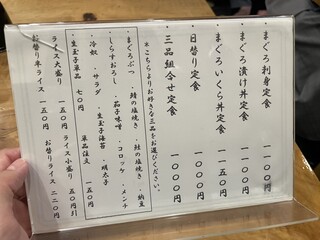 ・まぐろ刺身定食 一一〇〇円
・まぐろ漬け丼定食 一一〇〇円
・まぐろいくら丼定食 一一五〇円
・日替り定食 一〇〇〇円
・三品組合せ定食 一〇〇〇円
※こちらよりお好きな三品をお選びください。
・まぐろぶつ ・鯖の塩焼き ・鮭の塩焼き ・納豆
・しらすおろし ・茄子味噌 ・コロッケ ・メンチ
・冷奴 ・サラダ ・生玉子海苔 ・明太子
・生玉子単品 七〇円 単品注文 一五〇円
ライス大盛り 一五〇円 ライス小盛り 五〇円引
お替り半ライス 一五〇円 お替りライス 二二〇円